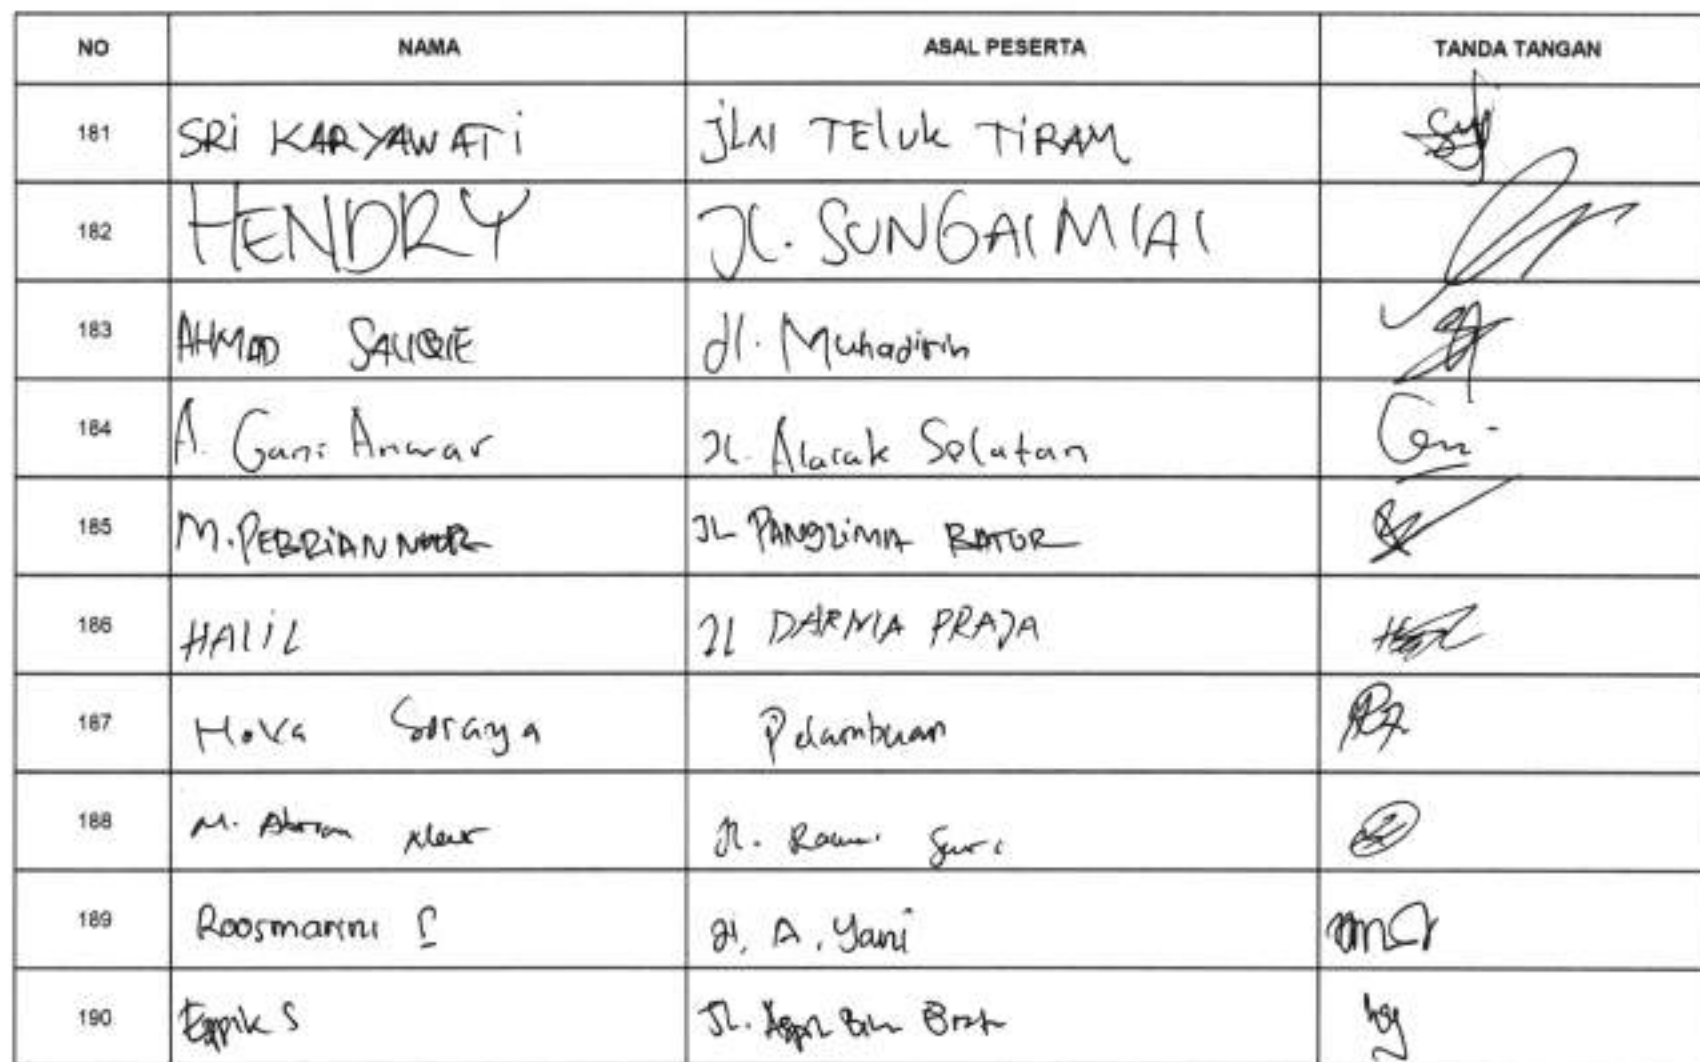 NO NAMA ASAL PESERTA TANDA TANGAN
181 SRI KARYAWATI JLN TELUK TIRAM
182 HENDRY JL. SUNGAI MIAI
183 AHMAD SAUQIE Jl. Muhadirin
184 A. Gani Anwar Jl. Alalak Selatan
185 M. PEBRIAN NOOR JL PANGLIMA BATUR
186 HALIL Jl DARMA PRAJA
187 Soraya Pelambuan
188 M. Jl.
189 Roosmarini S Jl. A. Yani
190 Eppik S Jl.